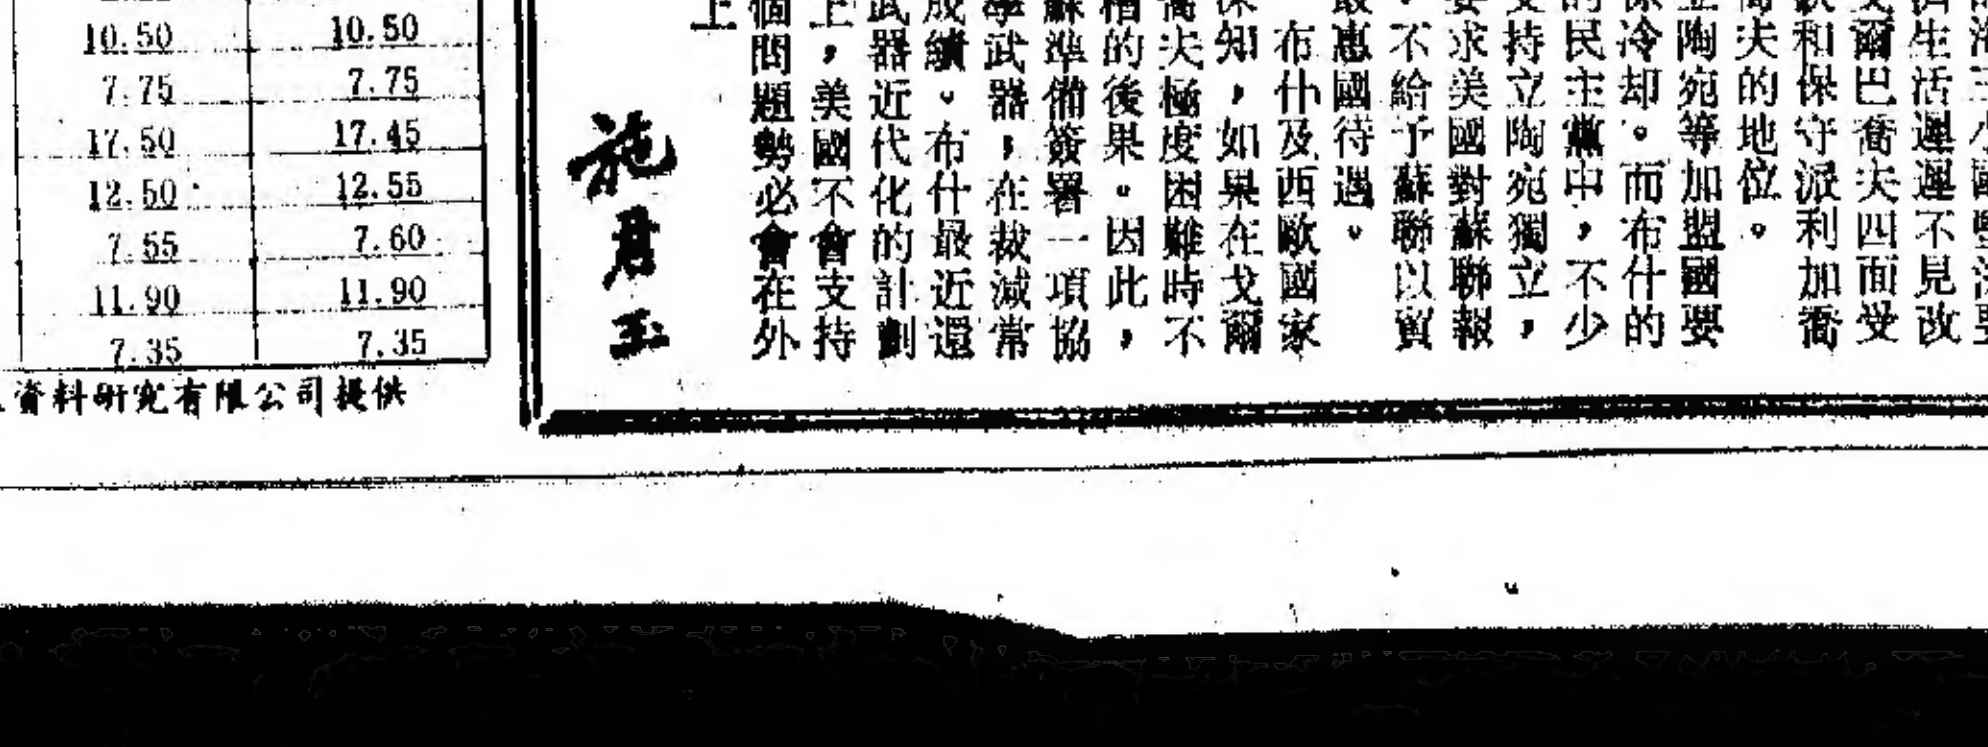 10.50 10.50
7.75 7.75
17.50 17.45
12.50 12.55
7.55 7.60
11.90 11.90
7.35 7.35
資料研究有限公司提供
生活遲遲不見改
爾巴喬夫四面受
和保守派利加喬
夫的地位。
陶宛等加盟國要
冷却。而布什的
的民主黨中，不少
支持立陶宛獨立，
要求美國對蘇聯報
。不給予蘇聯以貿
最惠國待遇。
布什及西歐國家
深知，如果在戈爾
喬夫極度困難時不
糟的後果。因此，
蘇準備簽署一項協
學武器，在裁減常
成績。布什最近還
武器近代化的計劃
上，美國不會支持
個問題勢必會在外
上
施君玉